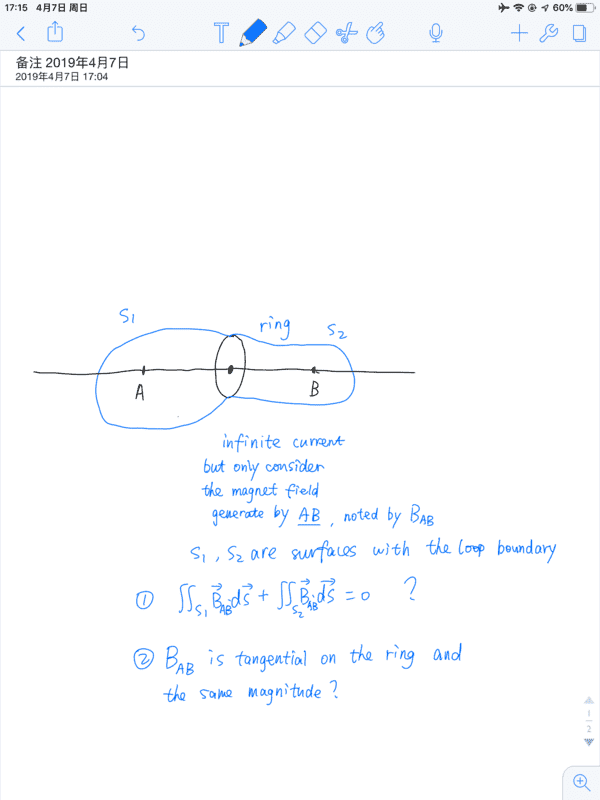 17:15 4月7日 周日
60%
T
备注 2019年4月7日
2019年4月7日 17:04
S1
ring
S2
A
B
infinite current
but only consider
the magnet field
generate by AB, noted by BAB
S1, S2 are surfaces with the loop boundary
① ∬S1 B⃗AB dS⃗ + ∬S2 B⃗AB dS⃗ = 0 ?
② BAB is tangential on the ring and
the same magnitude?
1
2